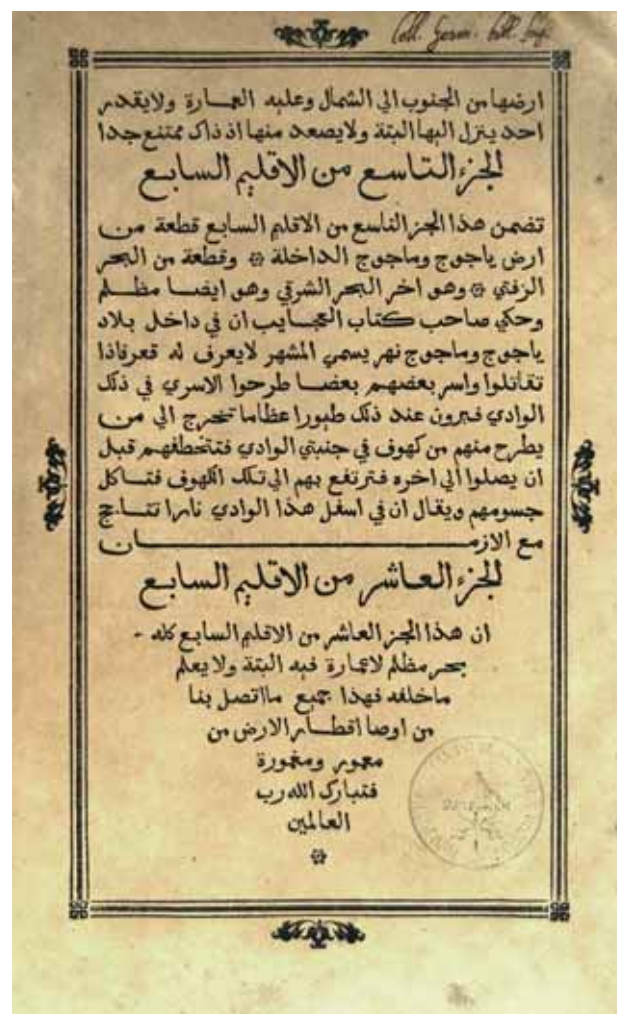 Coll.
ارضها من الجنوب الي الشمال وعليه العمارة ولايقدر
احد ينزل اليها البتة ولايصعد منها اذ ذاك ممتنع جدا
الجزء التاسع من الاقليم السابع
تضمن هذا الجزء التاسع من الاقليم السابع قطعة من
ارض ياجوج وماجوج الداخلة ۞ وقطعة من البحر
الزفتي ۞ وهو اخر البحر الشرقي وهو ايضا مظلم
وحكي صاحب كتاب العجايب ان في داخل بلاد
ياجوج وماجوج نهر يسمي المشهر لايعرف له قعر فاذا
تقاتلوا واسر بعضهم بعضا طرحوا الاسري في ذلك
الوادي فيرون عند ذلك طيورا عظاما تخرج الي من
يطرح منهم من كهوف في جنبتي الوادي فتختطفهم قبل
ان يصلوا الي اخره فترتفع بهم الي تلك الكهوف فتاكل
جسومهم ويقال ان في اسفل هذا الوادي نارا تتاجج
مع الازمـــان
الجزء العاشر من الاقليم السابع
ان هذا الجزء العاشر من الاقليم السابع كله -
بحر مظلم لاعمارة فيه البتة ولايعلم
ماخلفه فهذا جميع مااتصل بنا
من اوصا اقطار الارض من
معمور ومغمورة
فتبارك الله رب
العالمين
۞